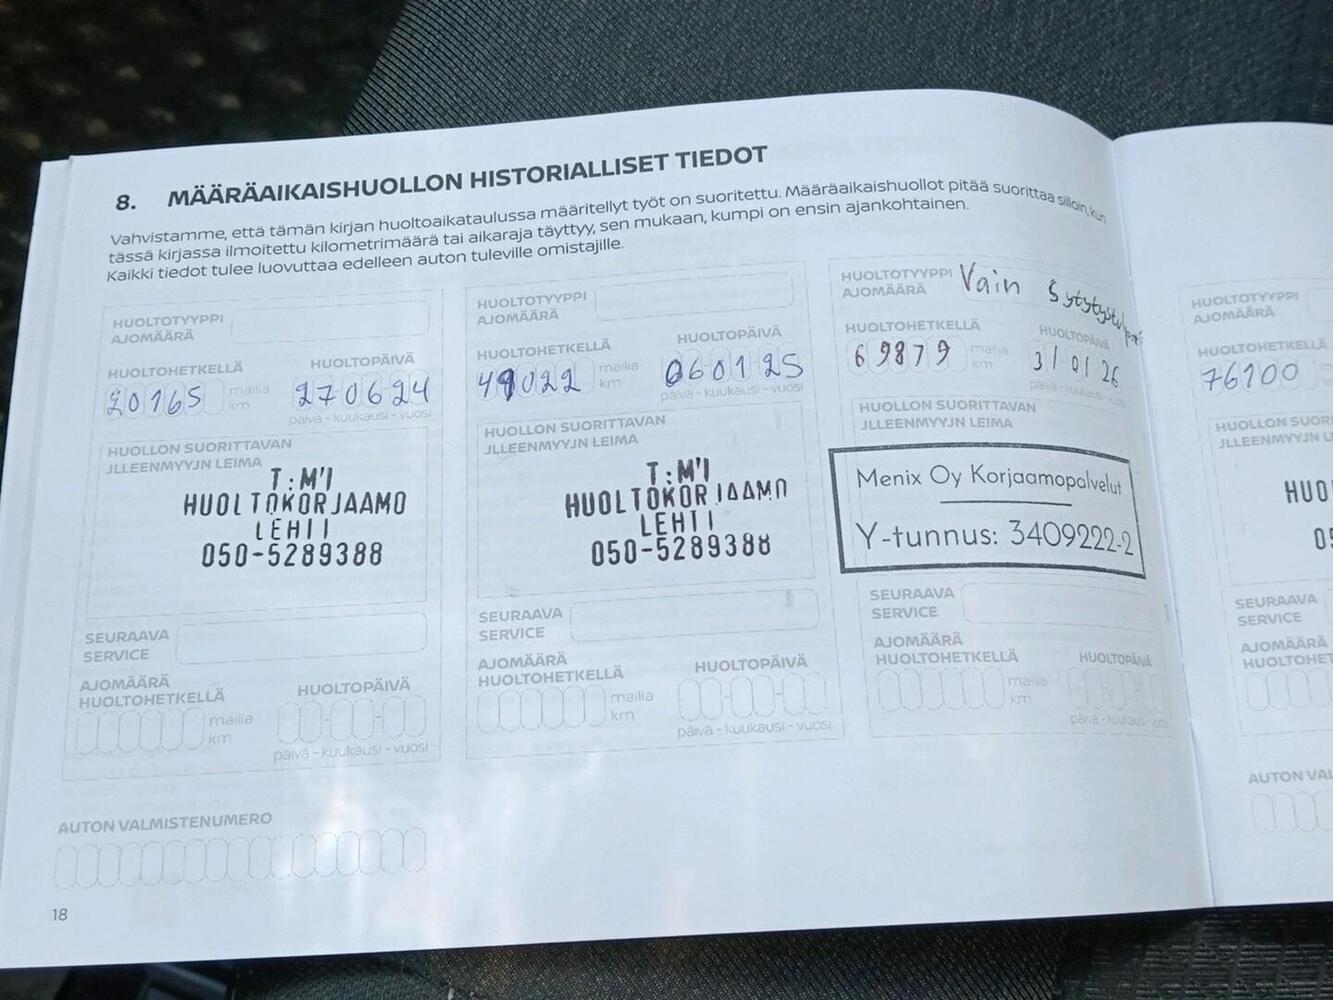 8. MÄÄRÄAIKAISHUOLLON HISTORIALLISET TIEDOT
Vahvistamme, että tämän kirjan huoltoaikataulussa määritellyt työt on suoritettu. Määräaikaishuollot pitää suorittaa silloin, kun
tässä kirjassa ilmoitettu kilometrimäärä tai aikaraja täyttyy, sen mukaan, kumpi on ensin ajankohtainen.
Kaikki tiedot tulee luovuttaa edelleen auton tuleville omistajille.
HUOLTOTYYPPI
AJOMÄÄRÄ
HUOLTOHETKELLÄ HUOLTOPÄIVÄ
20165 mailia km 270624
päivä - kuukausi - vuosi
HUOLLON SUORITTAVAN
JLLEENMYYJN LEIMA
T:M'I
HUOLTOKORJAAMO
LEHTI
050-5289388
SEURAAVA
SERVICE
AJOMÄÄRÄ
HUOLTOHETKELLÄ HUOLTOPÄIVÄ
mailia
km
päivä - kuukausi - vuosi
AUTON VALMISTENUMERO
18
HUOLTOTYYPPI
AJOMÄÄRÄ
HUOLTOHETKELLÄ HUOLTOPÄIVÄ
022 mailia km 060125
päivä - kuukausi - vuosi
HUOLLON SUORITTAVAN
JLLEENMYYJN LEIMA
T:M'I
HUOLTOKORJAAMO
LEHTI
050-5289388
SEURAAVA
SERVICE
AJOMÄÄRÄ
HUOLTOHETKELLÄ HUOLTOPÄIVÄ
mailia
km
päivä - kuukausi - vuosi
HUOLTOTYYPPI Vain
AJOMÄÄRÄ
HUOLTOHETKELLÄ HUOLTOPÄIVÄ
69879 mailia km 31 01 26
päivä - kuukausi - vuosi
HUOLLON SUORITTAVAN
JLLEENMYYJN LEIMA
Menix Oy Korjaamopalvelut
Y-tunnus: 3409222-2
SEURAAVA
SERVICE
AJOMÄÄRÄ
HUOLTOHETKELLÄ HUOLTOPÄIVÄ
mailia
km
päivä - kuukausi - vuosi
HUOLTOTYYPPI
AJOMÄÄRÄ
HUOLTOHETKELLÄ
76100
HUOLLON SUOR
JLLEENMYYJN L
HUO
05
SEURAAVA
SERVICE
AJOMÄÄRÄ
HUOLTOHET
AUTON VAL